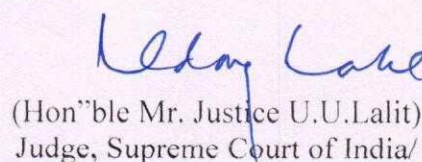 (Hon"ble Mr. Justice U.U.Lalit)
Judge, Supreme Court of India/